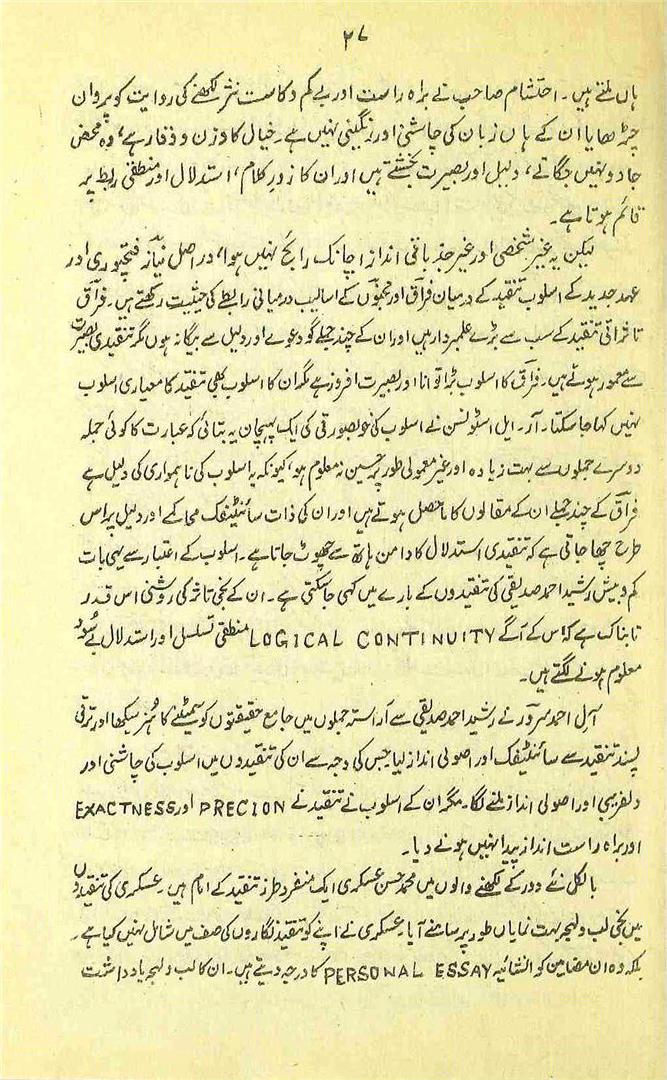 ۲۷
ہاں ملتے ہیں۔ احتشام صاحب نے براہ راست اور بے کم و کاست نثر لکھنے کی روایت کو پروان
چڑھایا ان کے ہاں زبان کی چاشنی اور رنگینی نہیں ہے۔ خیال کا وزن و وقار ہے، وہ محض
جادو نہیں جگاتے، دلیل اور بصیرت بخشتے ہیں اور ان کا زورِ کلام، استدلال اور منطقی ربط پر
قائم ہوتا ہے۔
لیکن یہ غیر شخصی اور غیر جذباتی انداز اچانک رائج نہیں ہوا، دراصل نیاز فتحپوری اور
عہد جدید کے اسلوب تنقید کے درمیان فراق اور مجنوں کے اسالیب درمیانی رابطے کی حیثیت رکھتے ہیں۔ فراق
تاثراتی تنقید کے سب سے بڑے علمبردار ہیں اور ان کے چند جملے گو دعوے اور دلیل سے بیگانہ ہوں مگر تنقیدی بصیرت
سے معمور ہوتے ہیں۔ فراق کا اسلوب بڑا توانا اور بصیرت افروز ہے مگر ان کا اسلوب علمی تنقید کا معیاری اسلوب
نہیں کہا جا سکتا۔ آر۔ ایل اسٹونسن نے اسلوب کی خوبصورتی کی ایک پہچان یہ بتائی کہ عبارت کا کوئی جملہ
دوسرے جملوں سے بہت زیادہ اور غیر معمولی طور پر حسین نہ معلوم ہو، کیونکہ یہ اسلوب کی ناہمواری کی دلیل ہے
فراق کے چند جملے ان کے مقالوں کا ماحصل ہوتے ہیں اور ان کی ذات سائنٹیفک محاکمے اور دلیل پر اس
طرح چھا جاتی ہے کہ تنقیدی استدلال کا دامن ہاتھ سے چھوٹ جاتا ہے۔ اسلوب کے اعتبار سے یہی بات
کم و بیش رشید احمد صدیقی کی تنقیدوں کے بارے میں کہی جا سکتی ہے۔ ان کے نجی تاثر کی روشنی اس قدر
تابناک ہے کہ اس کے آگے LOGICAL CONTINUITY منطقی تسلسل اور استدلال بے سُود
معلوم ہونے لگتے ہیں۔
آل احمد سرور نے رشید احمد صدیقی سے آراستہ جملوں میں جامع حقیقتوں کو سمیٹنے کا ہُنر سیکھا اور ترقی
پسند تنقید سے سائنٹیفک اور اصولی انداز لیا جس کی وجہ سے ان کی تنقیدوں میں اسلوب کی چاشنی اور
دلفریبی اور اصولی انداز ملنے لگا۔ مگر ان کے اسلوب نے تنقید نے PRECION اور EXACTNESS
اور براہ راست انداز پیدا نہیں ہونے دیا۔
بالکل نئے دور کے لکھنے والوں میں محمد حسن عسکری ایک منفرد طرز تنقید کے امام ہیں۔ عسکری کی تنقیدوں
میں نجی لب و لہجہ بہت نمایاں طور پر سامنے آیا۔ عسکری نے اپنے کو تنقید نگاروں کی صف میں شامل نہیں کیا ہے۔
بلکہ وہ ان مضامین کو انشائیہ PERSONAL ESSAY کا درجہ دیتے ہیں۔ ان کا لب و لہجہ یادداشت